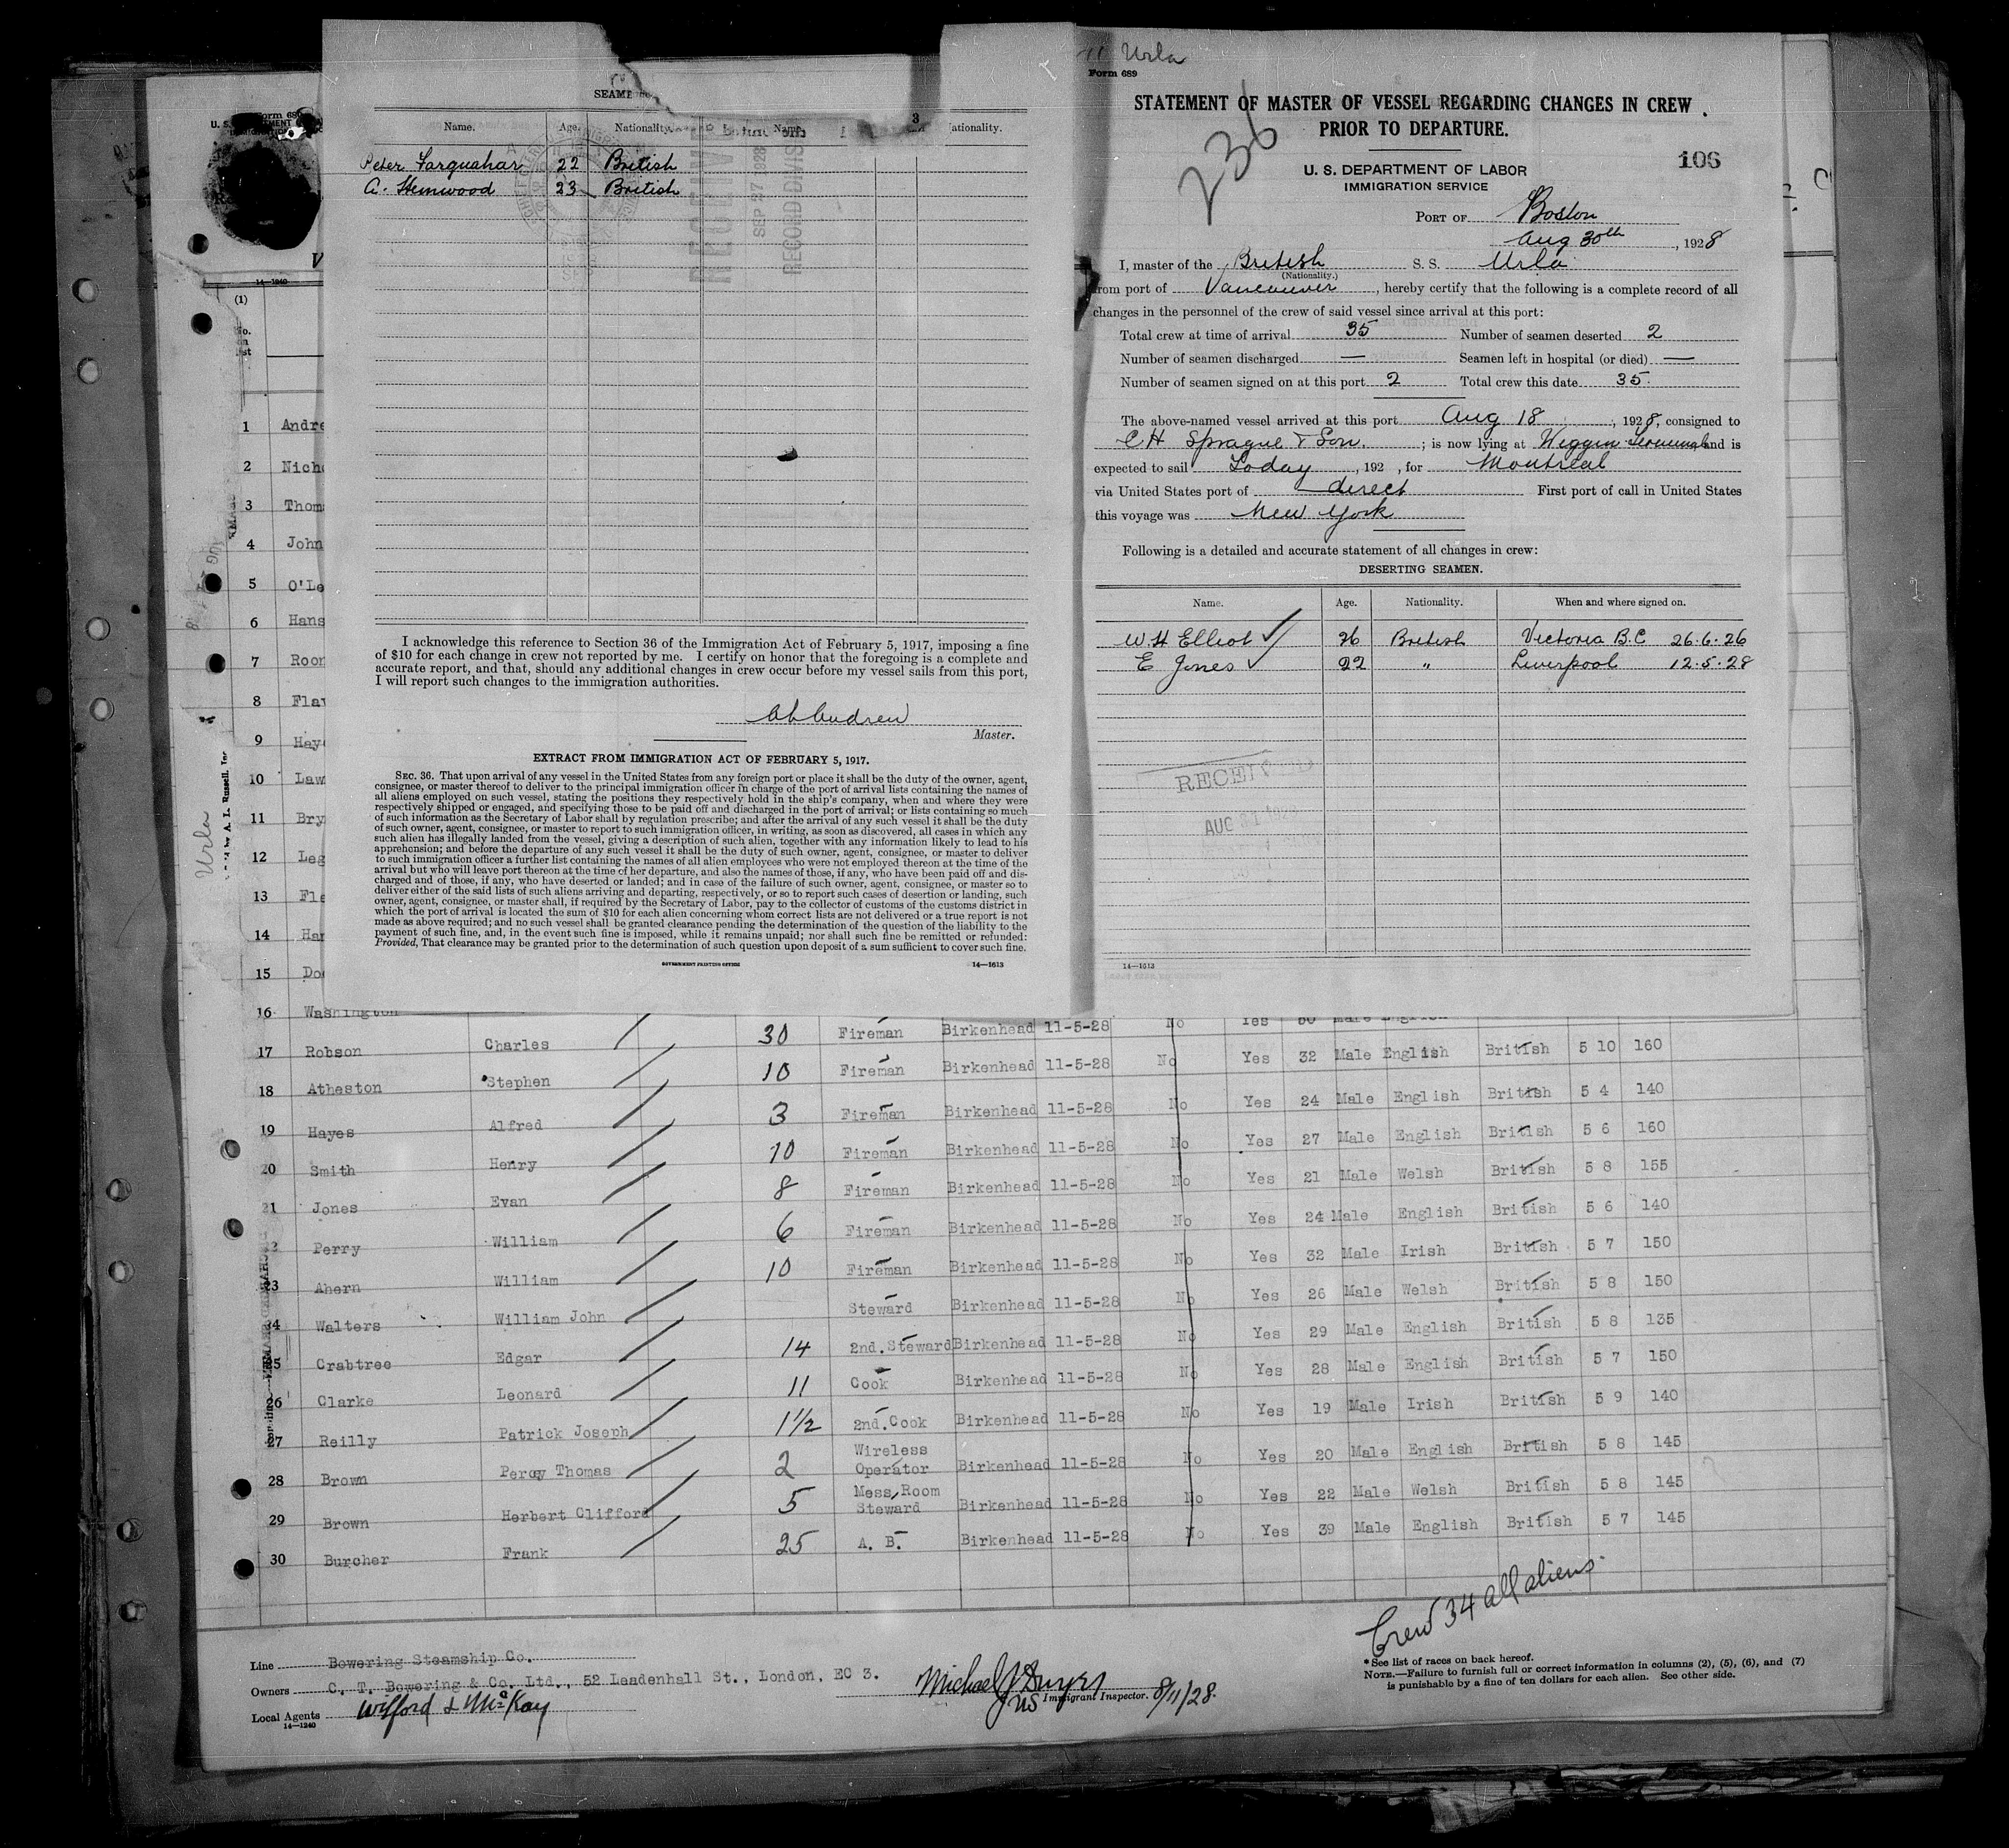 SEAME
Name. Age. Nationality. Name. ationality.
Peter Farquahar 22 British
A. Henwood 23 British
RECEIVED
SEP 27 1928
RECORD DIVIS
I acknowledge this reference to Section 36 of the Immigration Act of February 5, 1917, imposing a fine
of $10 for each change in crew not reported by me. I certify on honor that the foregoing is a complete and
accurate report, and that, should any additional changes in crew occur before my vessel sails from this port,
I will report such changes to the immigration authorities.
Master.
EXTRACT FROM IMMIGRATION ACT OF FEBRUARY 5, 1917.
SEC. 36. That upon arrival of any vessel in the United States from any foreign port or place it shall be the duty of the owner, agent,
consignee, or master thereof to deliver to the principal immigration officer in charge of the port of arrival lists containing the names of
all aliens employed on such vessel, stating the positions they respectively hold in the ship's company, when and where they were
respectively shipped or engaged, and specifying those to be paid off and discharged in the port of arrival; or lists containing so much
of such information as the Secretary of Labor shall by regulation prescribe; and after the arrival of any such vessel it shall be the duty
of such owner, agent, consignee, or master to report to such immigration officer, in writing, as soon as discovered, all cases in which any
such alien has illegally landed from the vessel, giving a description of such alien, together with any information likely to lead to his
apprehension; and before the departure of any such vessel it shall be the duty of such owner, agent, consignee, or master to deliver
to such immigration officer a further list containing the names of all alien employees who were not employed thereon at the time of the
arrival but who will leave port thereon at the time of her departure, and also the names of those, if any, who have been paid off and dis-
charged and of those, if any, who have deserted or landed; and in case of the failure of such owner, agent, consignee, or master so to
deliver either of the said lists of such aliens arriving and departing, respectively, or so to report such cases of desertion or landing, such
owner, agent, consignee, or master shall, if required by the Secretary of Labor, pay to the collector of customs of the customs district in
which the port of arrival is located the sum of $10 for each alien concerning whom correct lists are not delivered or a true report is not
made as above required; and no such vessel shall be granted clearance pending the determination of the question of the liability to the
payment of such fine, and, in the event such fine is imposed, while it remains unpaid; nor shall such fine be remitted or refunded:
Provided, That clearance may be granted prior to the determination of such question upon deposit of a sum sufficient to cover such fine.
GOVERNMENT PRINTING OFFICE 14—1613
Urla
Form 689
STATEMENT OF MASTER OF VESSEL REGARDING CHANGES IN CREW
PRIOR TO DEPARTURE.
236
106
U. S. DEPARTMENT OF LABOR
IMMIGRATION SERVICE
PORT OF Boston
Aug 30th, 1928
I, master of the British S. S. Urla
(Nationality.)
from port of Vancouver, hereby certify that the following is a complete record of all
changes in the personnel of the crew of said vessel since arrival at this port:
Total crew at time of arrival 35 Number of seamen deserted 2
Number of seamen discharged — Seamen left in hospital (or died) —
Number of seamen signed on at this port 2 Total crew this date 35.
The above-named vessel arrived at this port Aug 18, 1928, consigned to
C H Sprague & Son.; is now lying at Wiggin Terminal, and is
expected to sail Today, 192 , for Montreal
via United States port of direct First port of call in United States
this voyage was New York
Following is a detailed and accurate statement of all changes in crew:
DESERTING SEAMEN.
Name. Age. Nationality. When and where signed on.
W. H Elliot 26 British Victoria B.C 26.6.26
E Jones 22 " Liverpool 12.5.28
RECEIVED
AUG 31
14—1613
Form 689
14—1240
(1)
No.
on
list
1 Andre
2 Nich
3 Thom
4 John
5 O'Le
6 Hans
7 Roon
8 Flav
9 Hay
10 Law
11 Bry
12 Leg
13 Fle
14 Har
15 Do
16 Washington Yes 50 Male English
17 Robson Charles 30 Fireman Birkenhead 11-5-28 No Yes 32 Male English British 5 10 160
18 Atheston Stephen 10 Fireman Birkenhead 11-5-28 No Yes 24 Male English British 5 4 140
19 Hayes Alfred 3 Fireman Birkenhead 11-5-28 No Yes 27 Male English British 5 6 160
20 Smith Henry 10 Fireman Birkenhead 11-5-28 No Yes 21 Male Welsh British 5 8 155
21 Jones Evan 8 Fireman Birkenhead 11-5-28 No Yes 24 Male English British 5 6 140
22 Perry William 6 Fireman Birkenhead 11-5-28 No Yes 32 Male Irish British 5 7 150
23 Ahern William 10 Fireman Birkenhead 11-5-28 No Yes 26 Male Welsh British 5 8 150
24 Walters William John Steward Birkenhead 11-5-28 No Yes 29 Male English British 5 8 135
25 Crabtree Edgar 14 2nd. Steward Birkenhead 11-5-28 No Yes 28 Male English British 5 7 150
26 Clarke Leonard 11 Cook Birkenhead 11-5-28 No Yes 19 Male Irish British 5 9 140
27 Reilly Patrick Joseph 1½ 2nd. Cook Birkenhead 11-5-28 No Yes 20 Male English British 5 8 145
28 Brown Percy Thomas 2 Wireless Operator Birkenhead 11-5-28 No Yes 22 Male Welsh British 5 8 145
29 Brown Herbert Clifford 5 Mess Room Steward Birkenhead 11-5-28 No Yes 39 Male English British 5 7 145
30 Burcher Frank 25 A. B. Birkenhead 11-5-28 No
Crew 34 all aliens.
Line Bowering Steamship Co.
Owners C. T. Bowering & Co. Ltd., 52 Leadenhall St., London, EC 3.
Local Agents Wilford & McKay
14—1240
Michael J Dwyer
US Immigrant Inspector. 8/11/28.
* See list of races on back hereof.
NOTE.—Failure to furnish full or correct information in columns (2), (5), (6), and (7)
is punishable by a fine of ten dollars for each alien. See other side.
Urla